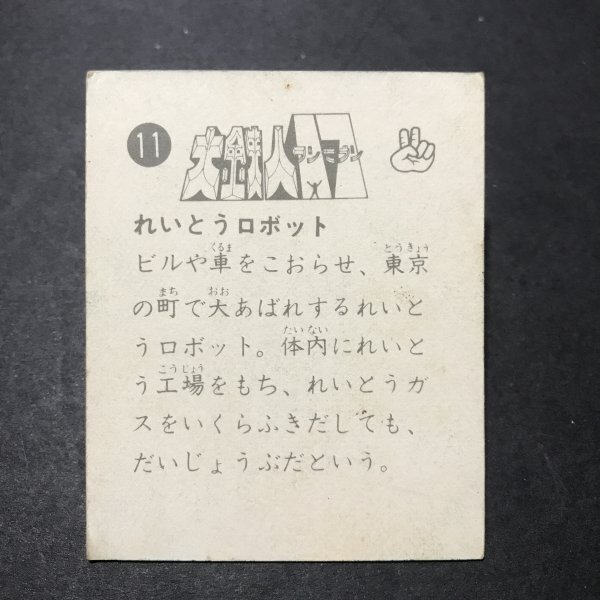 11
大鉄人17
ワンセブン
れいとうロボット
ビルや車をこおらせ、東京
の町で大あばれするれいと
うロボット。体内にれいと
う工場をもち、れいとうガ
スをいくらふきだしても、
だいじょうぶだという。